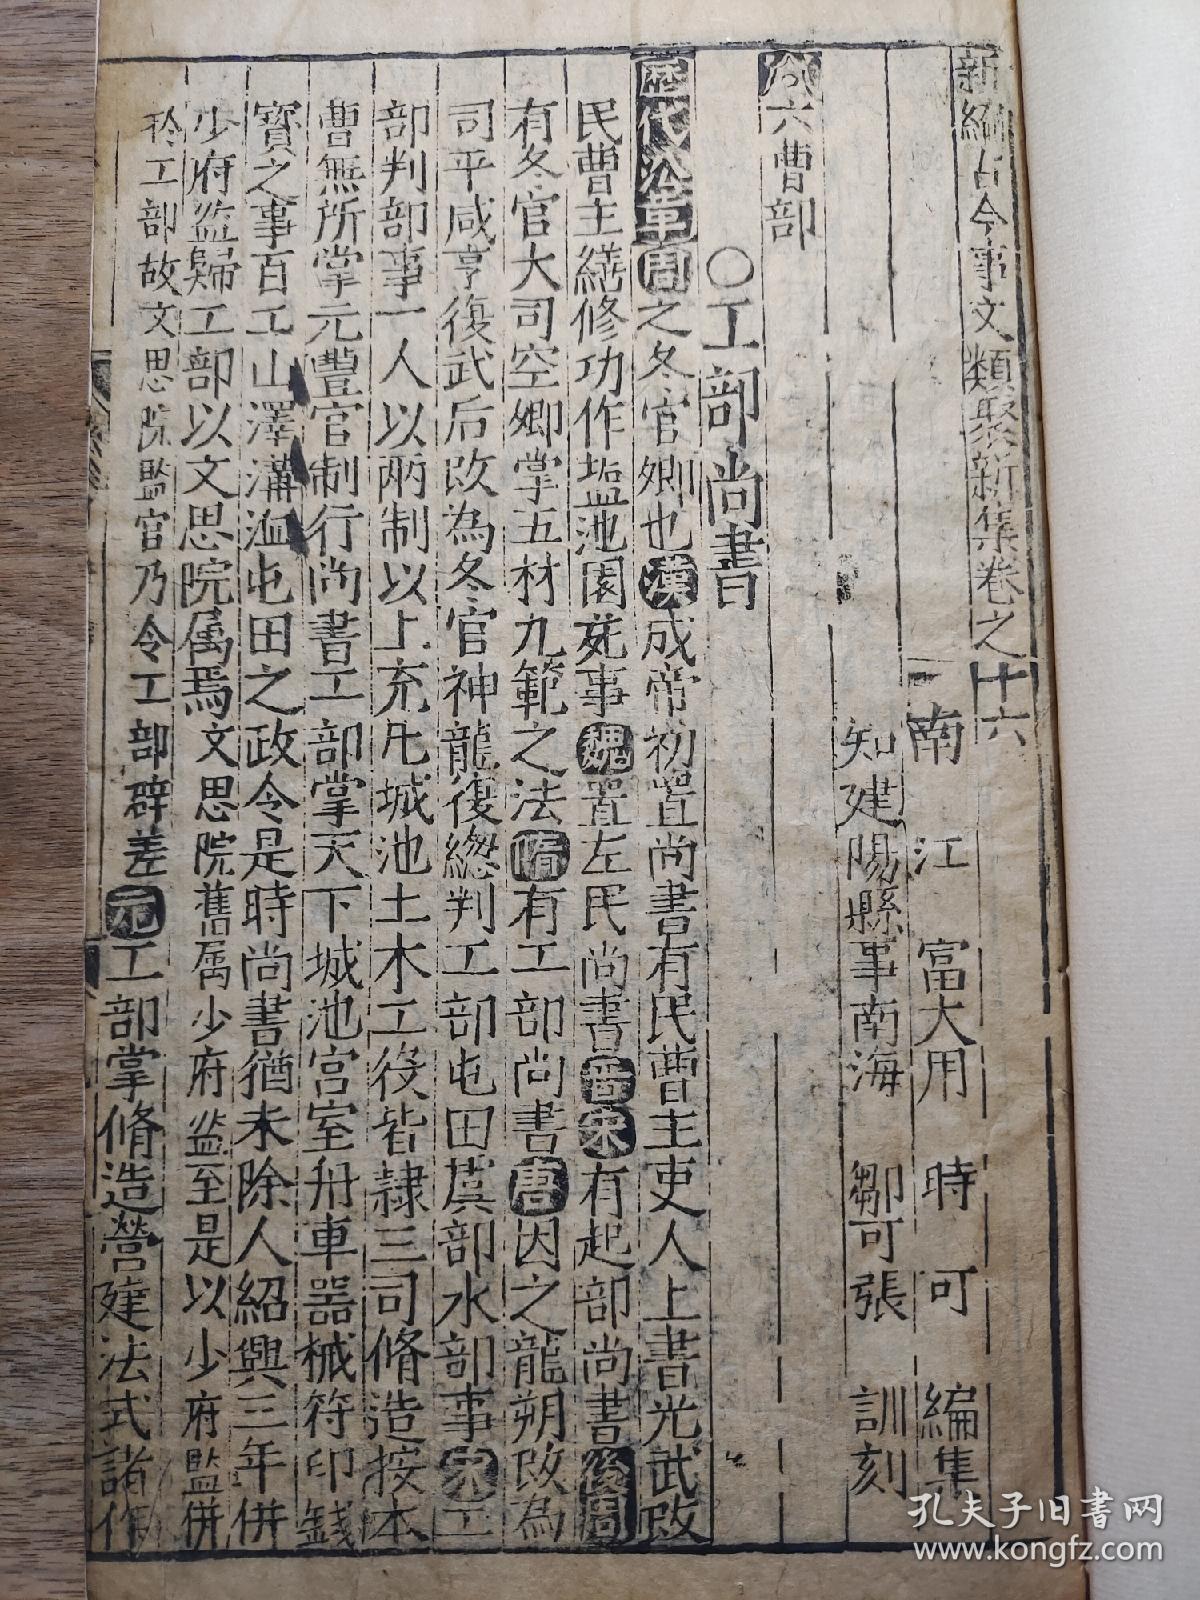 新編古今事文類聚新集卷之十六
南江富大用時可編集
知建陽縣事南海鄒可張訓刻
六曹部
○工部尚書
歷代沿革周之冬官卿也漢成帝初置尚書有民曹主吏人上書光武改
民曹主繕修功作塩池園苑事魏置左民尚書晋宋有起部尚書後周
有冬官大司空卿掌五材九範之法隋有工部尚書唐因之龍朔改為
司平咸亨復武后改為冬官神龍復緫判工部屯田虞部水部事宋工
部判部事一人以兩制以上充凡城池土木工役皆隷三司脩造按本
曹無所掌元豊官制行尚書工部掌天下城池宫室舟車器械符印錢
寳之事百工山澤溝洫屯田之政令是時尚書猶未除人紹興三年併
少府监歸工部以文思院属焉文思院舊属少府监至是以少府監併
於工部故文思院監官乃令工部辟差元工部掌脩造營建法式諸作
孔夫子旧書网
www.kongfz.com